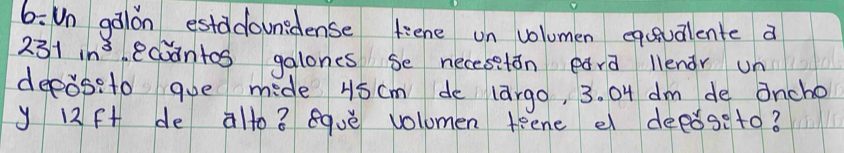 6- Un galón estadounidense tiene un volumen equivalente a
231 in³. ¿cuántos galones se necesitan para llenar un
depósito que mide 45cm de largo, 3.04 dm de ancho
y 12 ft de alto? ¿qué volumen tiene el depósito?